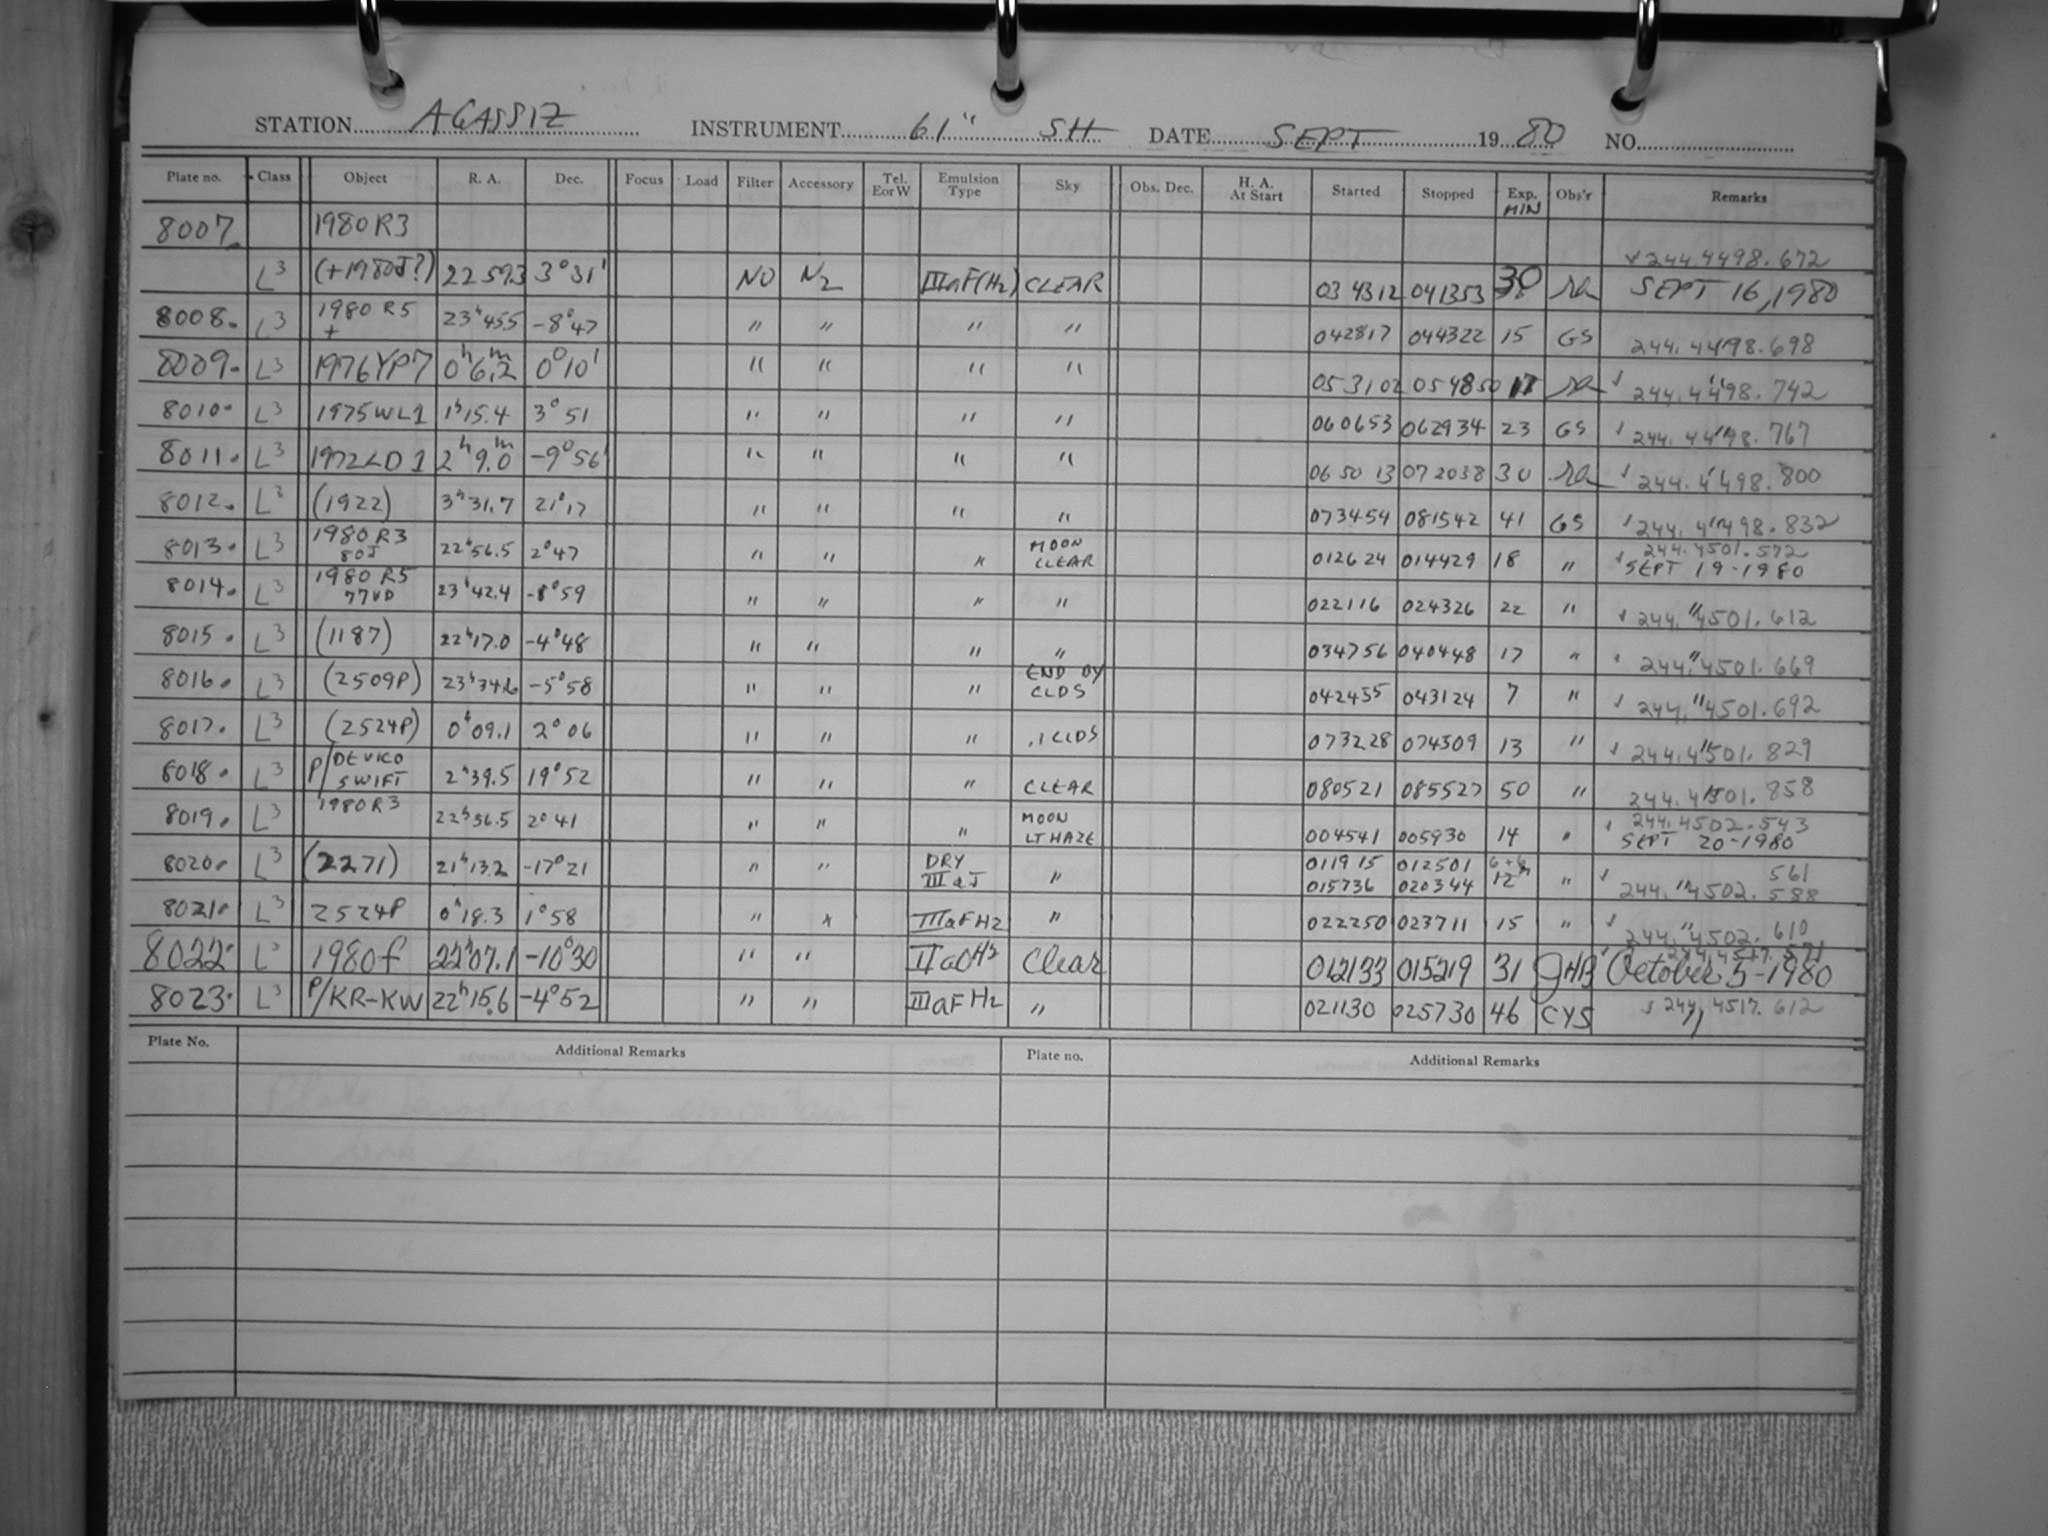 STATION AGASSIZ INSTRUMENT 61" SH DATE SEPT 19 80 NO.
Plate no. Class Object R. A. Dec. Focus Load Filter Accessory Tel. EorW Emulsion Type Sky Obs. Dec. H. A. At Start Started Stopped Exp. MIN Obs'r Remarks
8007. 1980 R3 244.4498.672
L3 (+1980J?) 22 59.3 3°31' NO N2 IIIaF(H2) CLEAR 034312 041353 30 SEPT 16, 1980
8008. L3 1980 R5 + 23h45.5 -8°47 " " " " 042817 044322 15 GS 244.4498.698
8009. L3 1976YP7 0h6m.2 0°10' " " " " 053102 054850 17 244.4498.742
8010. L3 1975WL1 1h15.4 3°51 " " " " 060653 062934 23 GS 244.4498.767
8011. L3 1972LD1 2h9m.0 -9°56' " " " " 065013 072038 30 244.4498.800
8012. L3 (1922) 3h31.7 21°17 " " " " 073454 081542 41 GS 244.4498.832
8013. L3 1980 R3 80J 22h56.5 2°47 " " " MOON CLEAR 012624 014429 18 " 244.4501.572 SEPT 19-1980
8014. L3 1980 R5 77VD 23h42.4 -8°59 " " " " 022116 024326 22 " 244.4501.612
8015. L3 (1187) 22h17.0 -4°48 " " " " 034756 040448 17 " 244.4501.669
8016. L3 (2509P) 23h34.6 -5°58 " " " END BY CLDS 042455 043124 7 " 244.4501.692
8017. L3 (2524P) 0h09.1 2°06 " " " .1 CLDS 073228 074509 13 " 244.4501.829
8018. L3 P/DEVICO SWIFT 2h39.5 19°52 " " " CLEAR 080521 085527 50 " 244.4501.858
8019. L3 1980R3 22h56.5 2°41 " " " MOON LT HAZE 004541 005930 14 " 244.4502.543 SEPT 20-1980
8020. L3 (2271) 21h13.2 -17°21 " " DRY IIIaJ " 011915 012501 6+6m " 561
015736 020344 12 244.4502.588
8021. L3 2524P 0h18.3 1°58 " " IIIaFH2 " 022250 023711 15 " 244.4502.610
8022. L3 1980f 22h07.1 -10°30 " " IIaOH2 Clear 012133 015219 31 GHB 244.4517.571 October 5-1980
8023. L3 P/KR-KW 22h15.6 -4°52 " " IIIaFH2 " 021130 025730 46 CYS 244.4517.612
Plate No. Additional Remarks Plate no. Additional Remarks